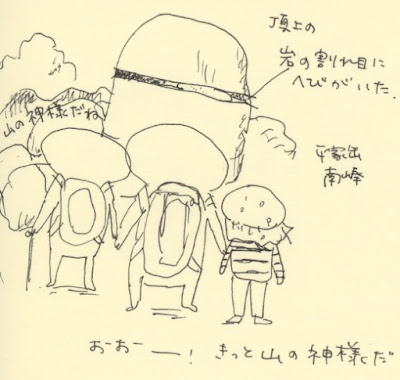 頂上の
岩の割れ目に
へびがいた.
山の神様だね
平家岳
南峰
おーおー ー! きっと山の神様だ